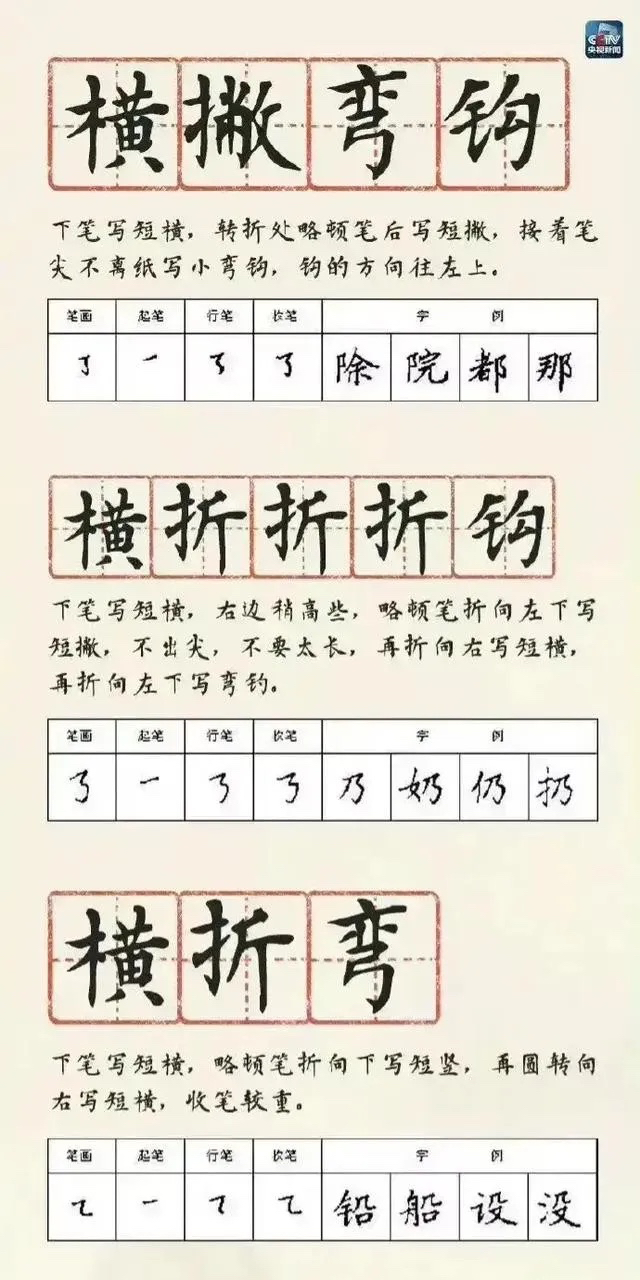 CCTV
央视新闻
横撇弯钩
下笔写短横，转折处略顿笔后写短撇，接着笔
尖不离纸写小弯钩，钩的方向往左上。
笔画 起笔 行笔 收笔 字 例
㇌ 一 ㇌ ㇌ 除 院 都 那
横折折折钩
下笔写短横，右边稍高些，略顿笔折向左下写
短撇，不出尖，不要太长，再折向右写短横，
再折向左下写弯钩。
笔画 起笔 行笔 收笔 字 例
㇡ 一 ㇡ ㇡ 乃 奶 仍 扔
横折弯
下笔写短横，略顿笔折向下写短竖，再圆转向
右写短横，收笔较重。
笔画 起笔 行笔 收笔 字 例
㇍ 一 ㇍ ㇍ 铅 船 设 没